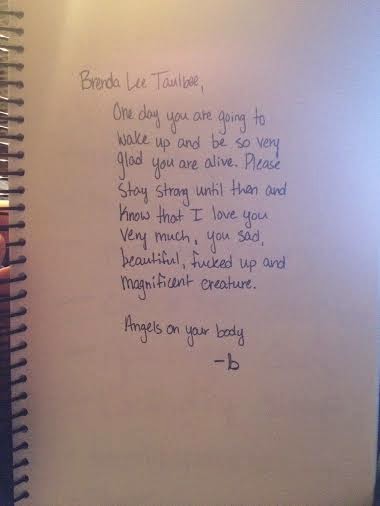 Brenda Lee Taulbee,
One day you are going to
wake up and be so very
glad you are alive. Please
stay strong until then and
know that I love you
very much, you sad,
beautiful, fucked up and
magnificent creature.
Angels on your body
-b